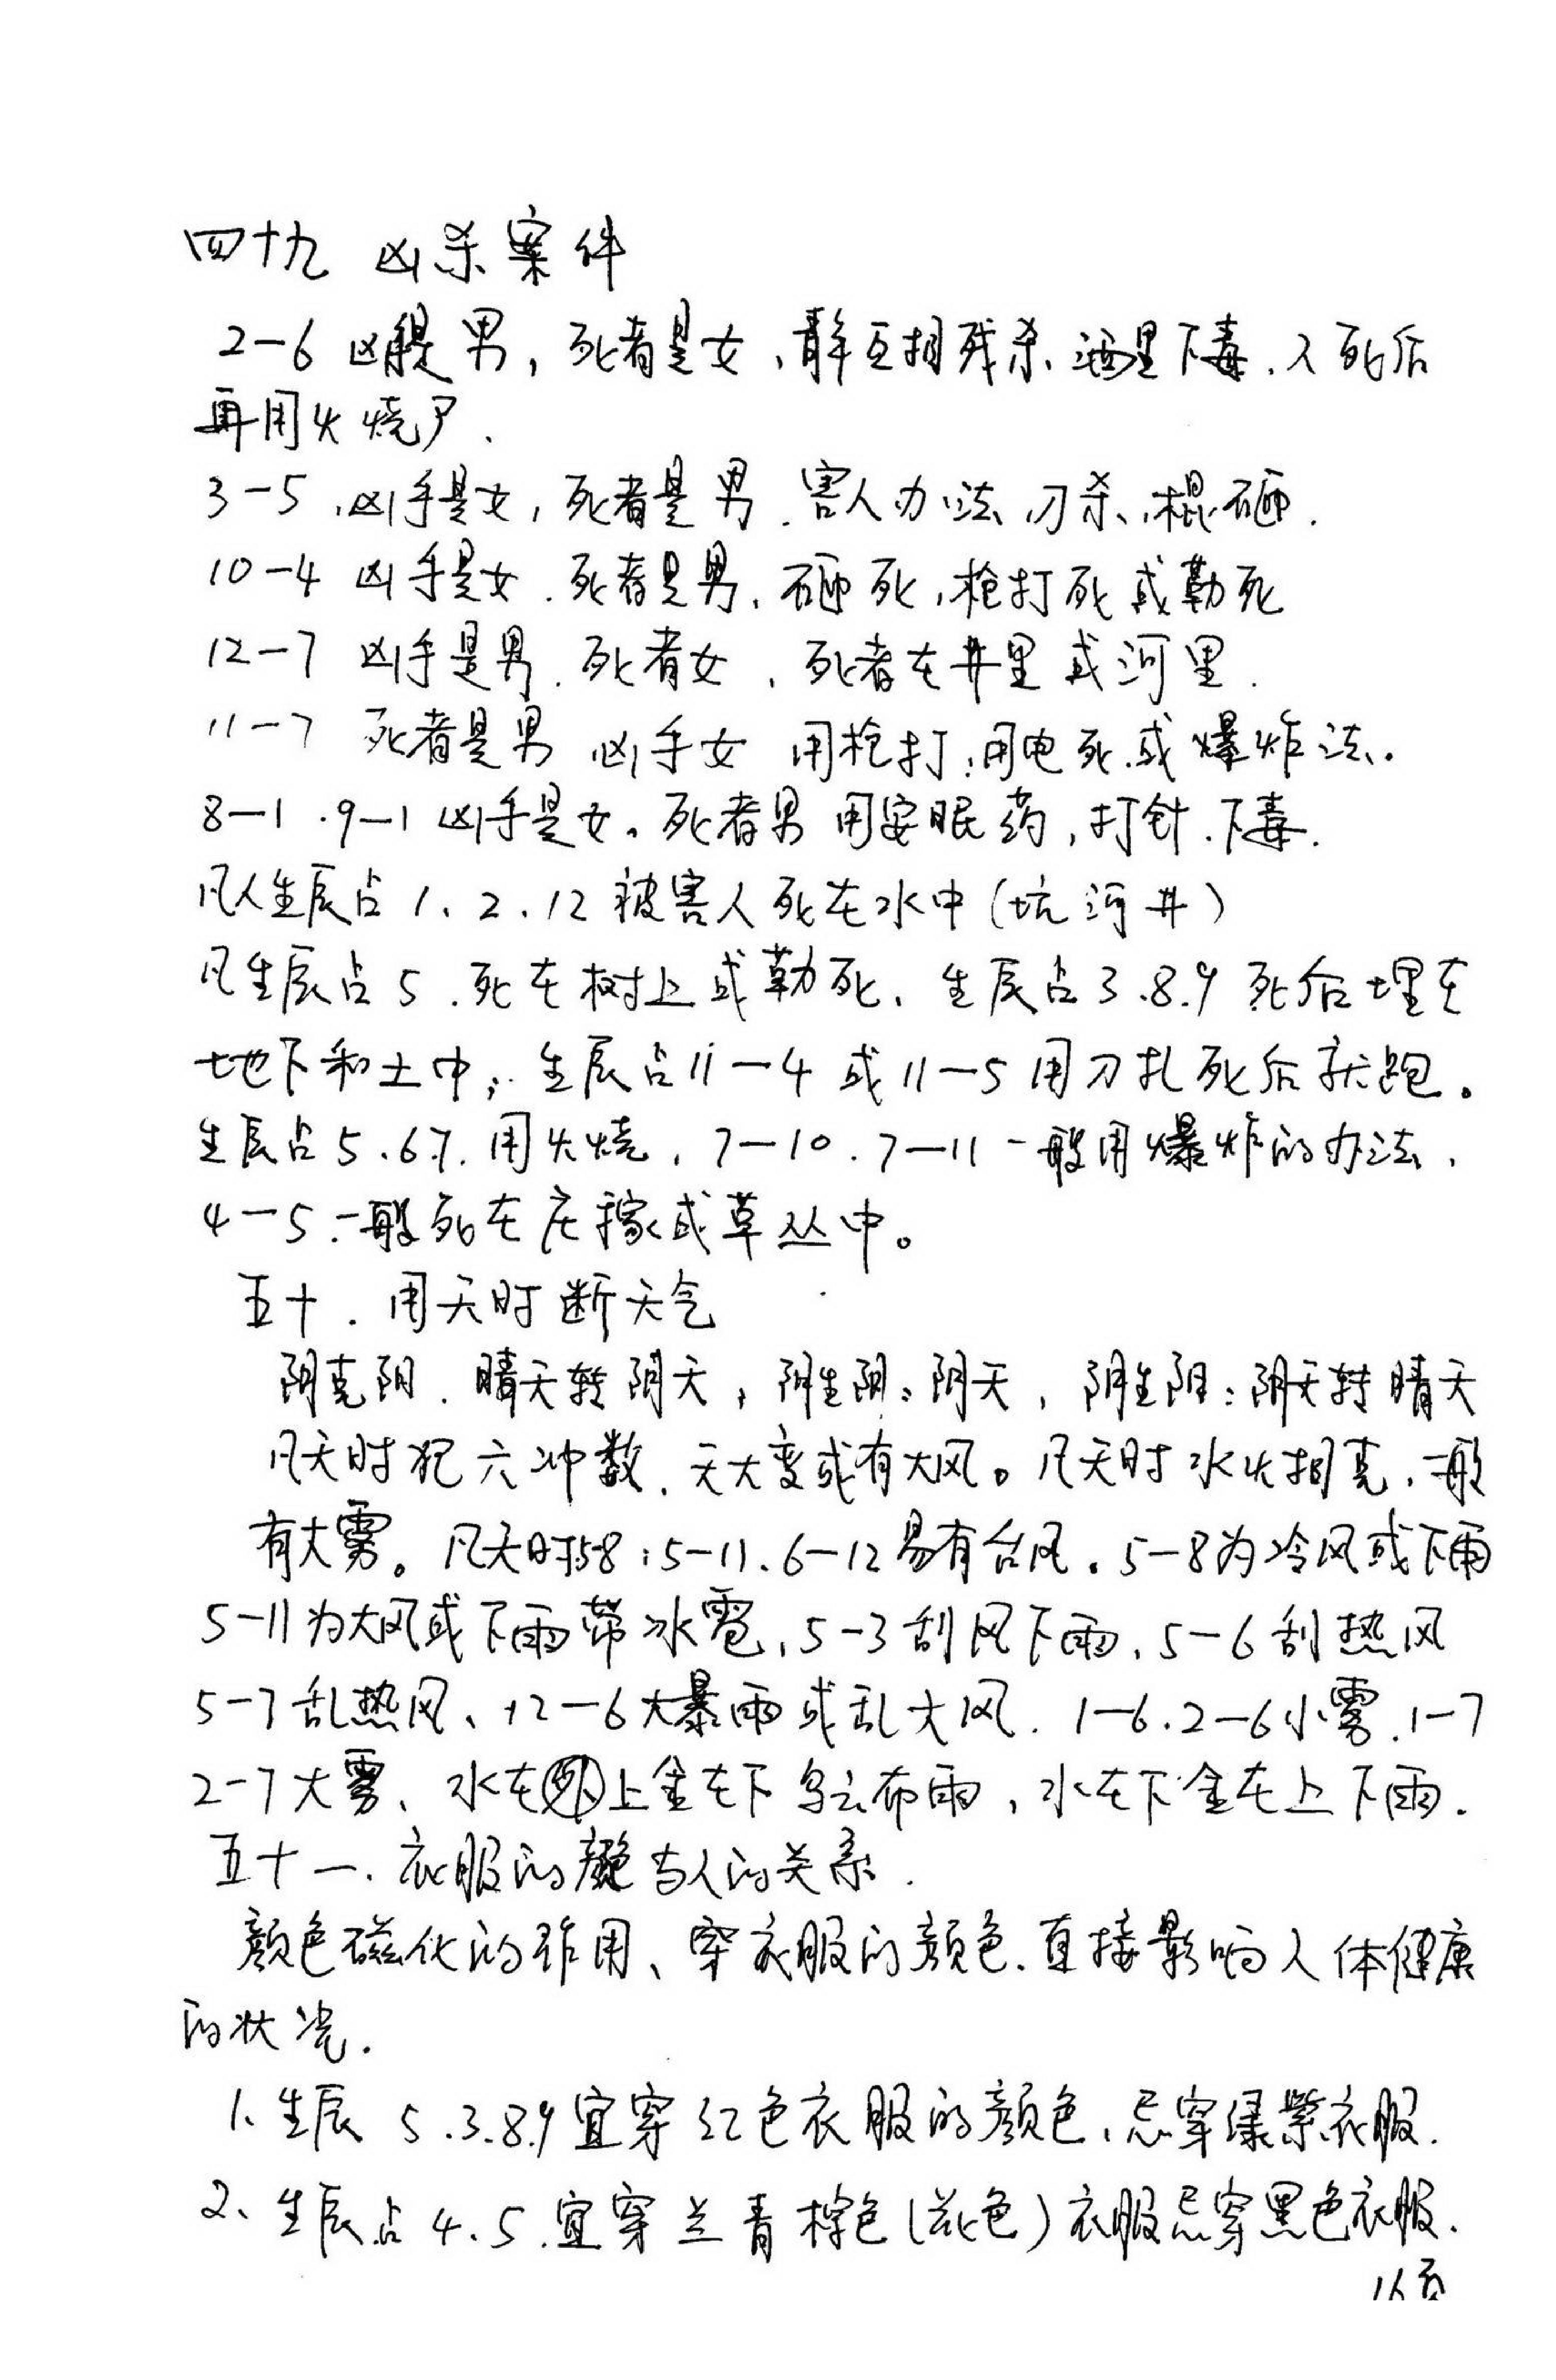 四十九 凶杀案件
2-6 凶是男，死者是女，互相残杀、酒里下毒，人死后
再用火烧尸、
3-5，凶手是女，死者是男．害人办法 刀杀、棍砸．
10-4 凶手是女．死者是男．砸死，枪打死或勒死
12-7 凶手是男．死者女，死者在井里或河里．
11-7 死者是男 凶手女 用枪打，用电死．或爆炸法．
8-1．9-1 凶手是女。死者男 用安眠药，打针．下毒．
凡人生辰占1、2、12 被害人死在水中（坑河井）
凡生辰占5．死在树上或勒死、生辰占3.8.9 死后埋在
地下和土中；生辰占11-4 或11-5 用刀扎死后就跑。
生辰占5.6.7．用火烧，7-10．7-11 一般用爆炸的办法，
4-5．一般死在庄稼或草丛中。
五十．用天时断天气
阴克阳．晴天转阴天，阴生阴：阴天，阴生阳：阴天转晴天
凡天时犯六冲数．天大变或有大风。凡天时水火相克，一般
有大雾。凡天时5-8；5-11、6-12易有台风。5-8为冷风或下雨
5-11为大风或下雨带冰雹，5-3刮风下雨，5-6刮热风
5-7乱热风、12-6大暴雨或乱大风．1-6．2-6小雾．1-7
2-7大雾、水在上金在下 乌云布雨，水在下金在上下雨．
五十一、衣服的颜色与人的关系．
颜色磁化的作用、穿衣服的颜色．直接影响人体健康
的状况．
1、生辰 5.3.8.9宜穿红色衣服的颜色，忌穿绿紫衣服．
2、生辰占4、5．宜穿兰青棕色（花色）衣服忌穿黑色衣服．
16页